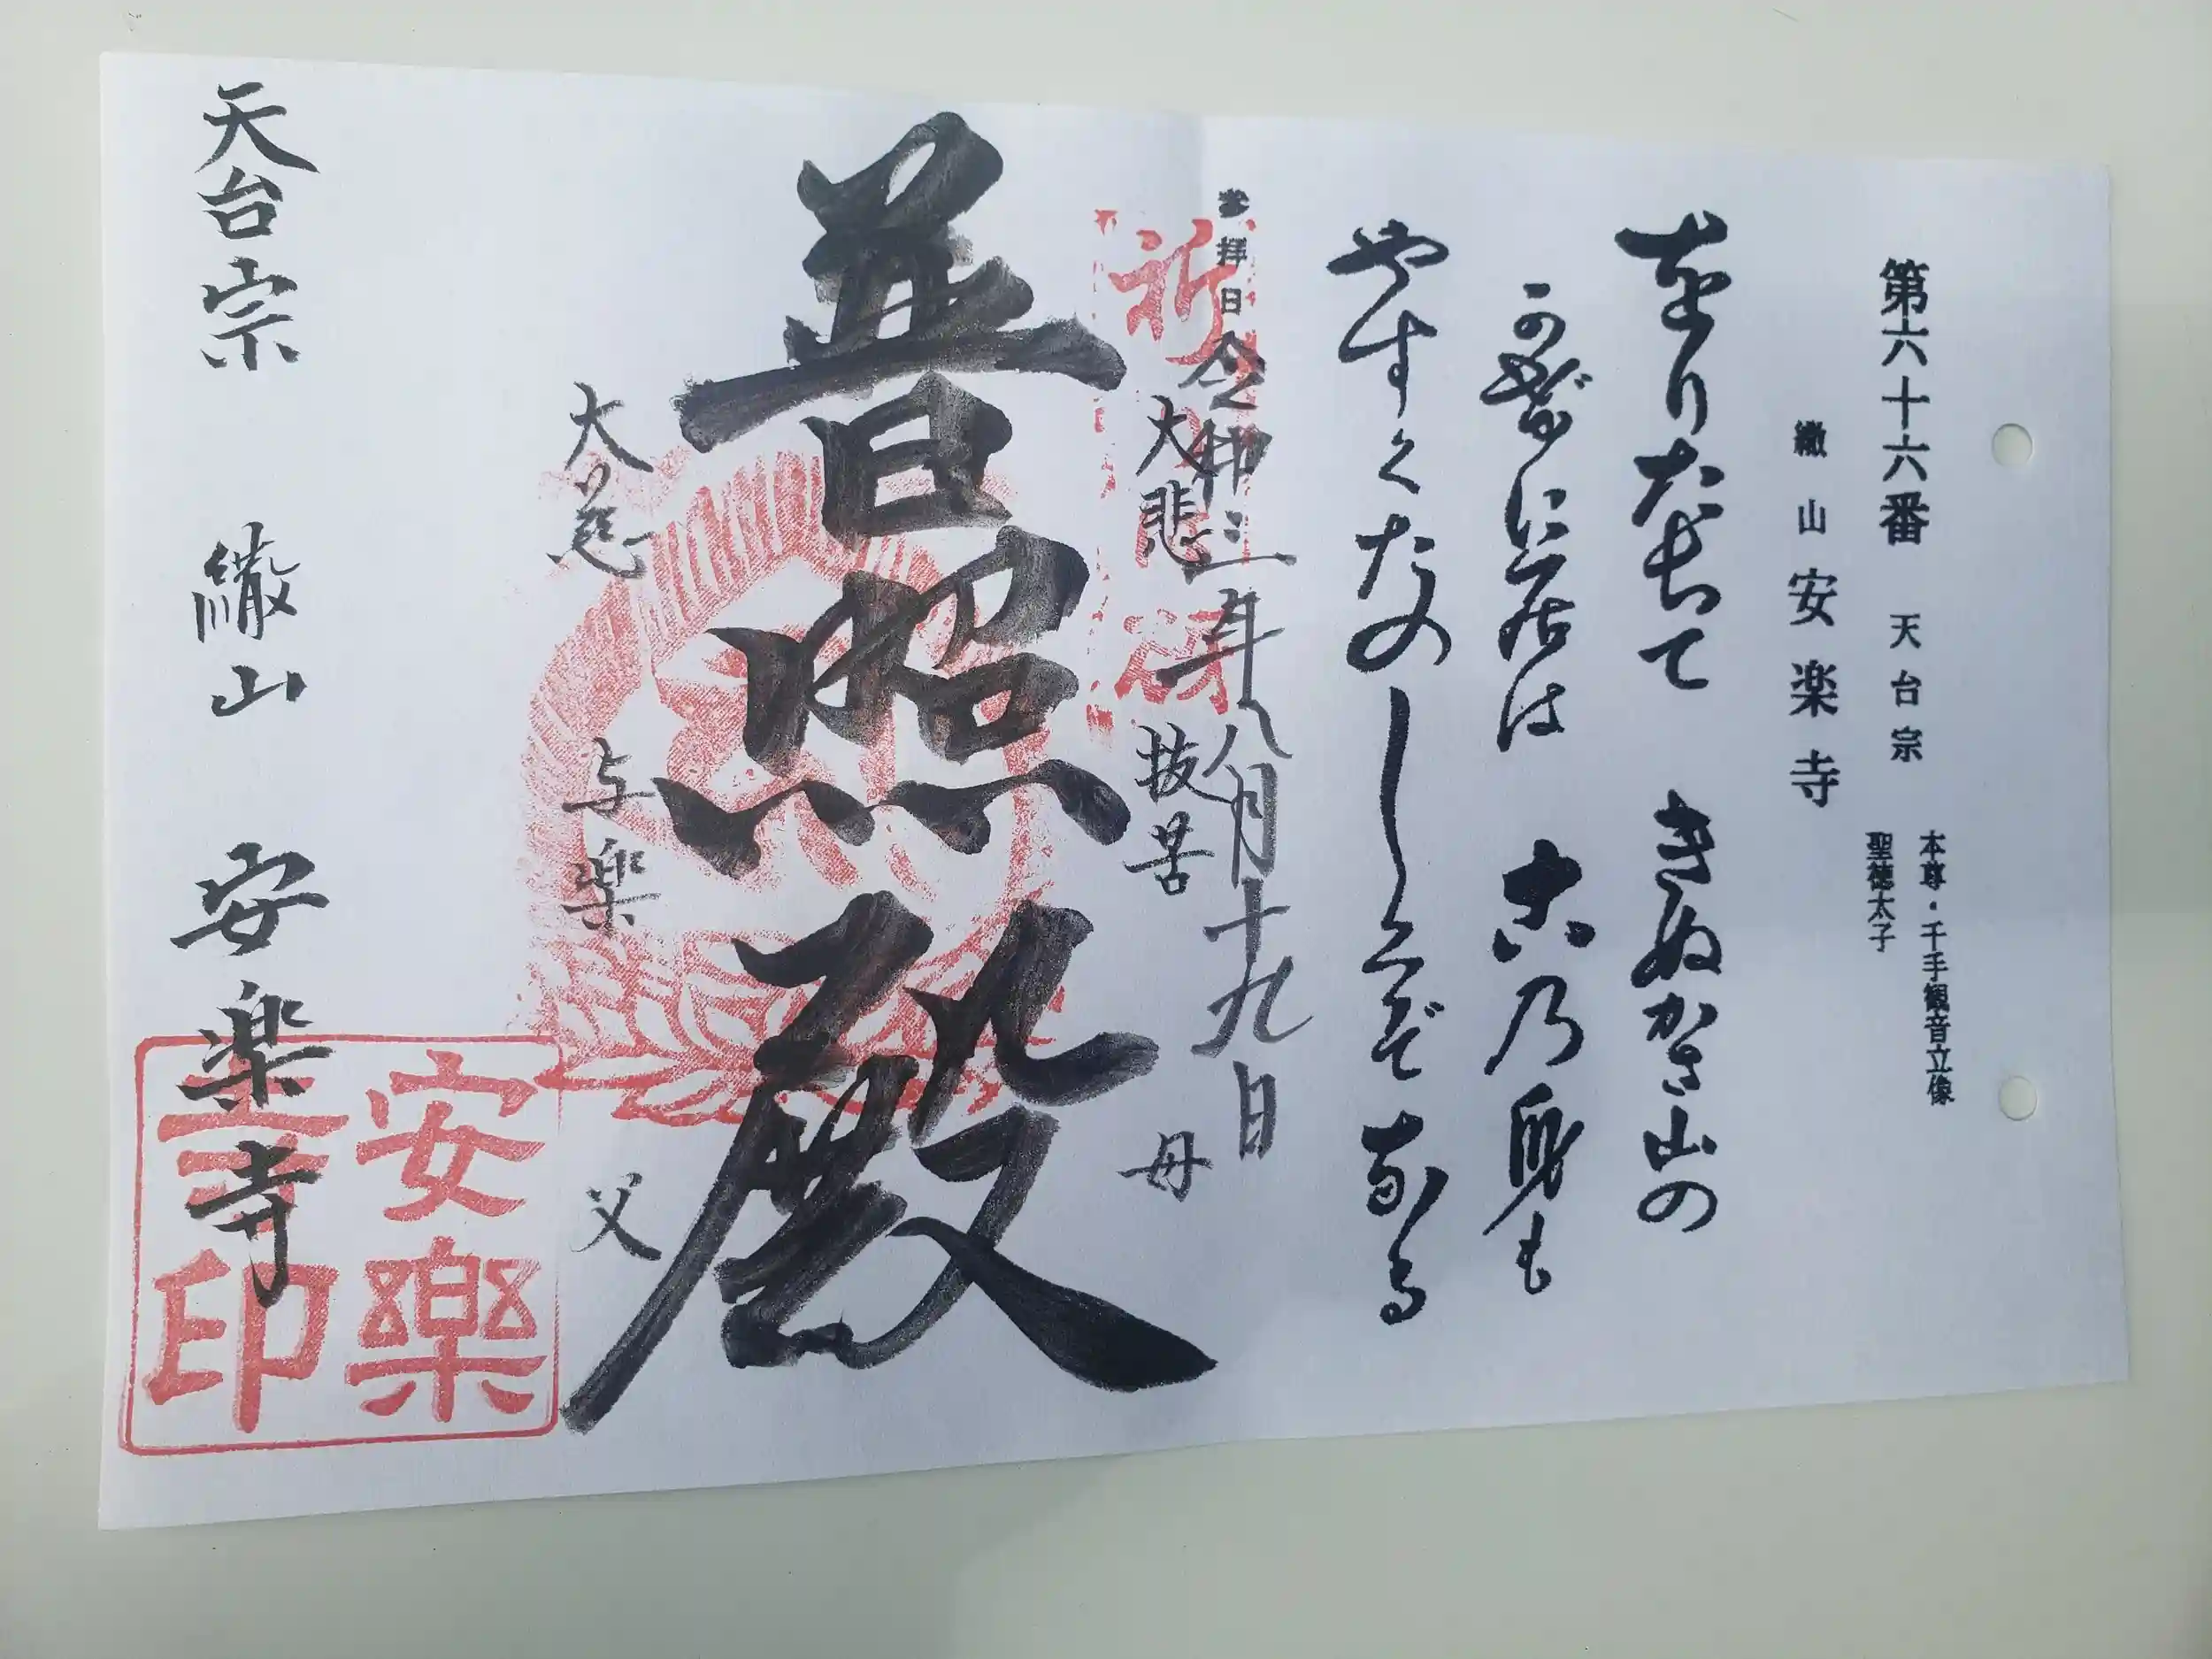 第六十六番 天台宗 本尊・千手観音立像
聖徳太子
繖山 安楽寺
をりたちて きぬかさ山の
のきに居は 古乃身も
やすくたのしくぞ なる
参拝日 令和三年八月十九日
祈
大悲 抜苦 母
普照殿
大慈 与楽 父
天台宗 繖山 安楽寺
安樂
寺印